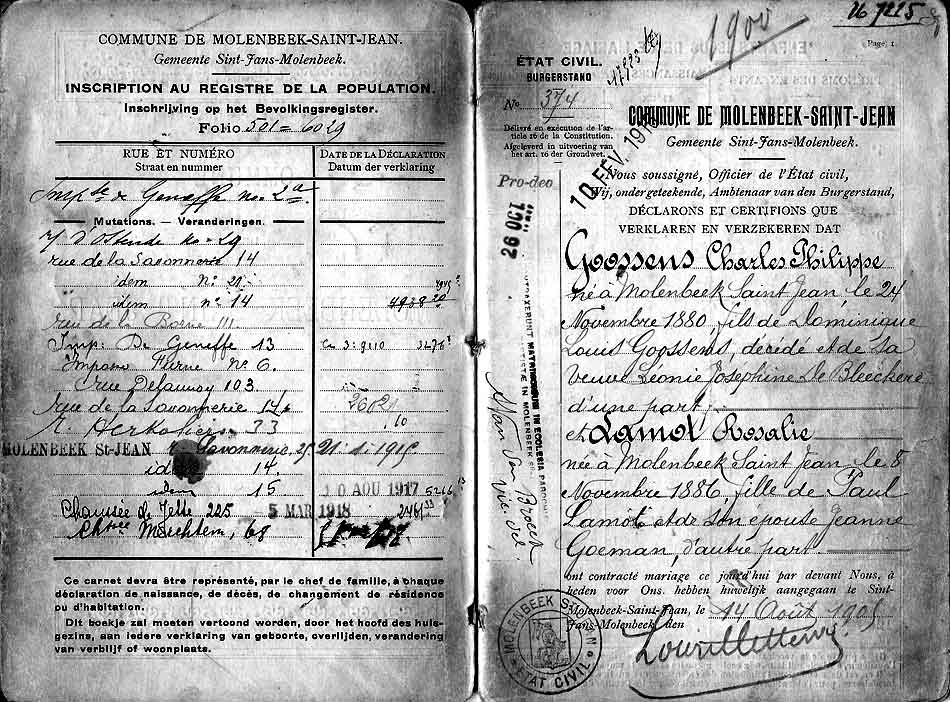 COMMUNE DE MOLENBEEK-SAINT-JEAN.
Gemeente Sint-Jans-Molenbeek.
INSCRIPTION AU REGISTRE DE LA POPULATION.
Inschrijving op het Bevolkingsregister.
Folio 501 = 6029
RUE ET NUMÉRO
Straat en nummer
DATE DE LA DÉCLARATION
Datum der verklaring
de Geneffe no 2a
Mutations. — Veranderingen.
r/ d'Ostende no 29
rue de la Savonnerie 14
idem No 21
idem no 14 4938
rue de la Borne 111
Imp: De Geneffe 13
No 6.
rue Delaunoy 103
rue de la Savonnerie 14
33
MOLENBEEK St-JEAN Savonnerie 21. 1. 1915
idem 14.
idem 15 10 AOU 1917
Chaussée de Jette 225 5 MAR 1918
Chssée Merchtem, 68
Ce carnet devra être représenté, par le chef de famille, à chaque
déclaration de naissance, de décès, de changement de résidence
ou d'habitation.
Dit boekje zal moeten vertoond worden, door het hoofd des huis-
gezins, aan iedere verklaring van geboorte, overlijden, verandering
van verblijf of woonplaats.
1900
Page 1
ÉTAT CIVIL.
BURGERSTAND
No 374
Délivré en exécution de l'ar-
ticle 16 de la Constitution.
Afgeleverd in uitvoering van
het art. 16 der Grondwet.
Pro-deo
10 FEV. 191
26 OCT
COMMUNE DE MOLENBEEK-SAINT-JEAN
Gemeente Sint-Jans-Molenbeek.
Nous soussigné, Officier de l'État civil,
Wij, ondergeteekende, Ambtenaar van den Burgerstand,
DÉCLARONS ET CERTIFIONS QUE
VERKLAREN EN VERZEKEREN DAT
Goossens Charles Philippe
né à Molenbeek Saint Jean, le 24
Novembre 1880, fils de Dominique
Louis Goossens, décédé et de sa
veuve Léonie Josephine De Bleeckere
d'une part;
et Lamot Rosalie
née à Molenbeek Saint Jean, le 8
Novembre 1886, fille de Paul
Lamot et de son épouse Jeanne
Goeman, d'autre part.
ont contracté mariage ce jourd'hui par devant Nous, à
heden voor Ons. hebben huwelijk aangegaan te Sint-
Molenbeek-Saint-Jean, le
Jans-Molenbeek, den 14 Août 190
CONTRAXERUNT MATRIMONIUM IN ECCLESIA PAROCHI
BAPTISTÆ IN MOLENBEEK
Van den Broeck
MOLENBEEK ST JEAN
ETAT CIVIL